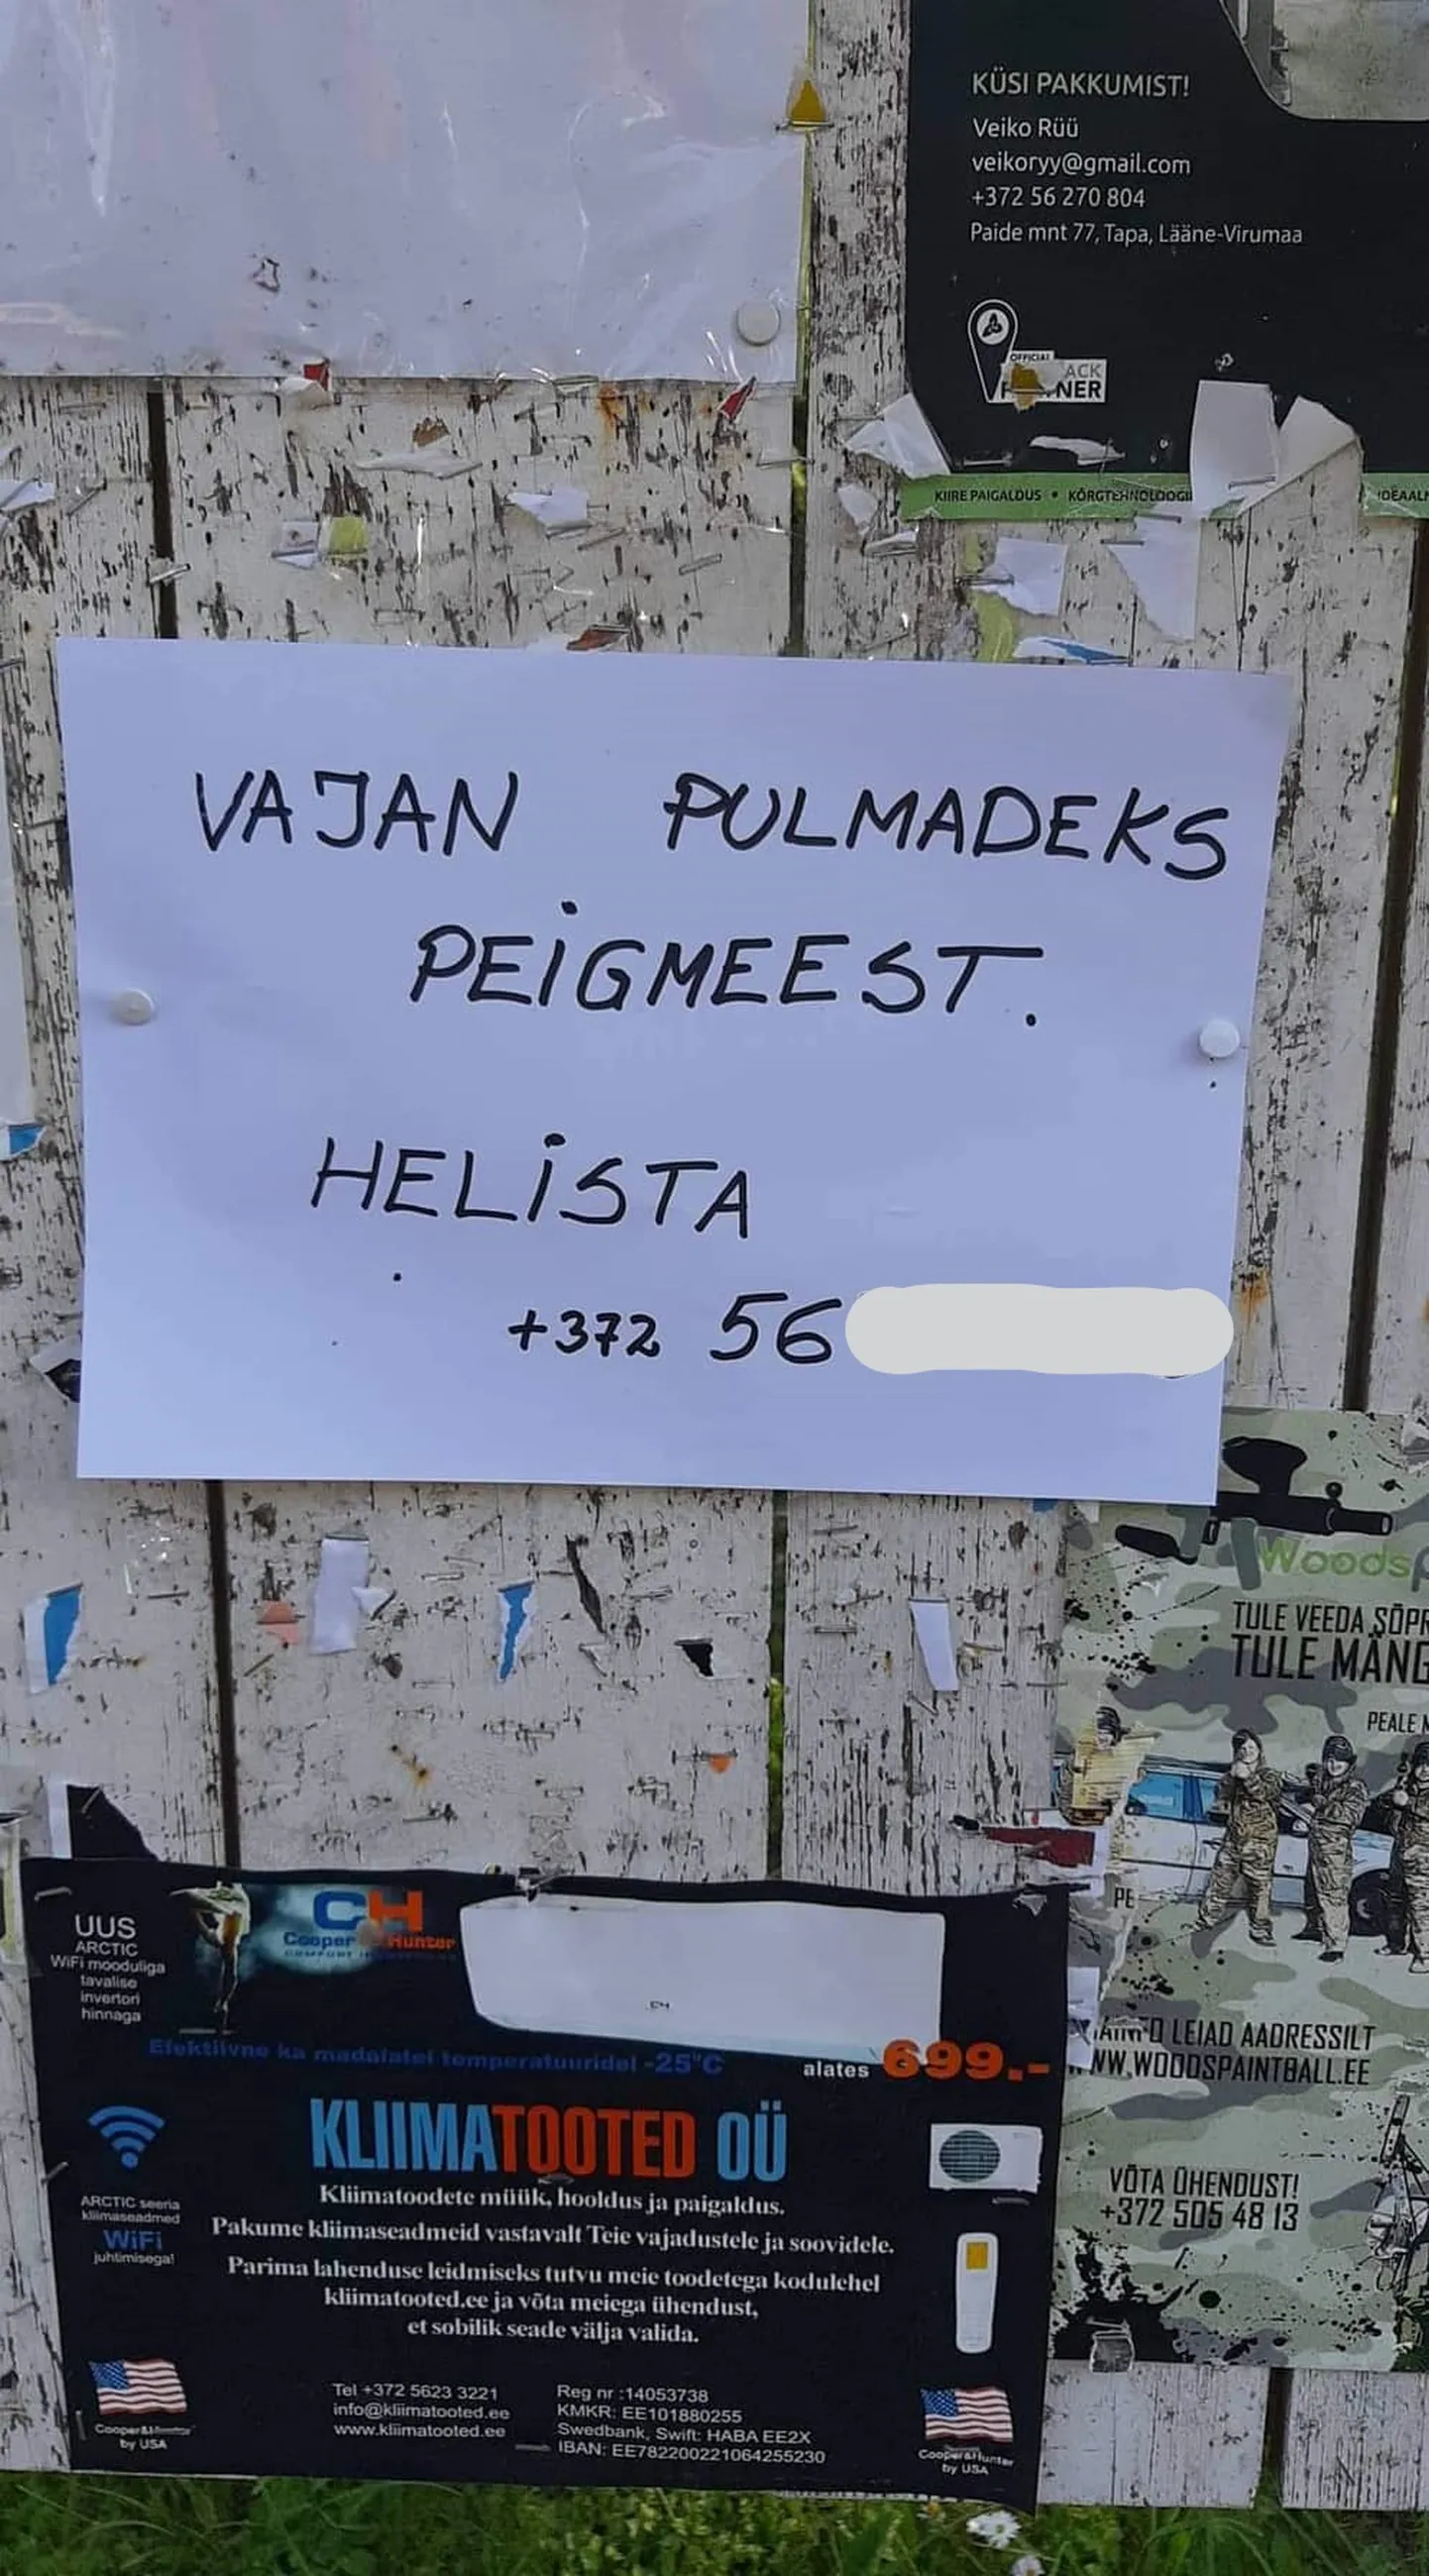 KÜSI PAKKUMIST!
Veiko Rüü
veikoryy@gmail.com
+372 56 270 804
Paide mnt 77, Tapa, Lääne-Virumaa
OFFICIAL
KIIRE PAIGALDUS • KÕRGTEHNOLOOGI
VAJAN PULMADEKS
PEIGMEEST.
HELISTA
+372 56
Woods
TULE VEEDA SÕPR
TULE MÄNG
PEALE
UUS
ARCTIC
WiFi mooduliga
tavalise
invertori
hinnaga
CH
Cooper Hunter
Efektiivne ka madalatel temperatuuridel -25°C
alates 699.-
KLIIMATOOTED OÜ
Kliimatoodete müük, hooldus ja paigaldus.
Pakume kliimaseadmeid vastavalt Teie vajadustele ja soovidele.
Parima lahenduse leidmiseks tutvu meie toodetega kodulehel
kliimatooted.ee ja võta meiega ühendust,
et sobilik seade välja valida.
ARCTIC seeria
kliimaseadmed
WiFi
juhtimisega!
Tel +372 5623 3221
info@kliimatooted.ee
www.kliimatooted.ee
Reg nr :14053738
KMKR: EE101880255
Swedbank, Swift: HABA EE2X
IBAN: EE782200221064255230
Cooper&Hunter
by USA
Cooper&Hunter
by USA
LEIAD AADRESSILT
WW.WOODSPAINTBALL.EE
VÕTA ÜHENDUST!
+372 505 48 13